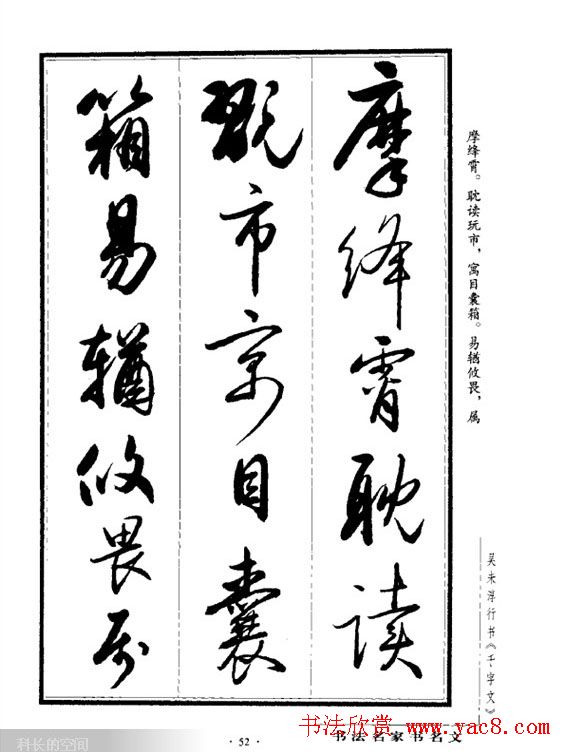 摩绛霄耽读
翫市寓目囊
箱易輶攸畏属
摩绛霄。耽读玩市，寓目囊箱。易輶攸畏，属
吴未淳行书《千字文》
·52·
书法名家书名文
书法欣赏 www.yac8.com
科长的空间